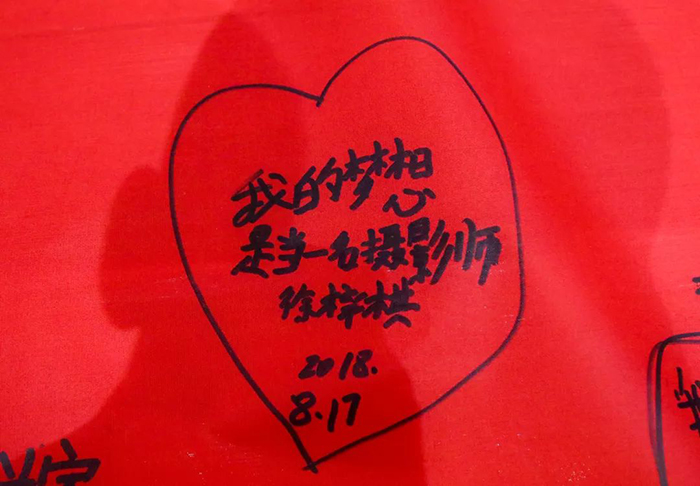 我的梦想
是当一名摄影师
徐梓栱
2018.
8.17